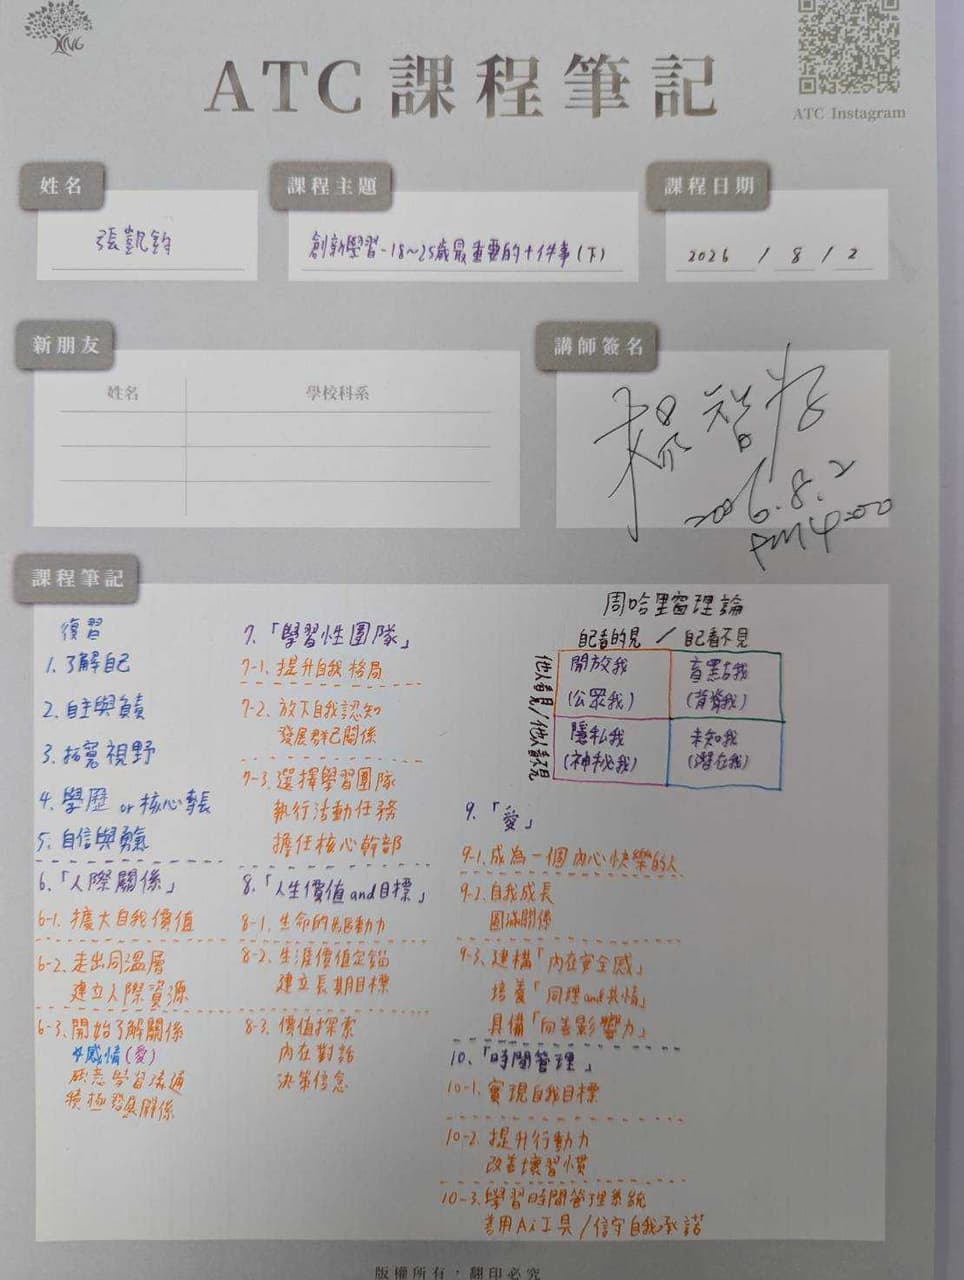 ATC 課程筆記
ATC Instagram
姓名
張凱鈞
課程主題
創新學習-18~25歲最重要的十件事(下)
課程日期
2026 / 8 / 2
新朋友
姓名 學校科系
講師簽名
楊智
2026.8.2
PM4:00
課程筆記
復習
1. 了解自己
2. 自主與負責
3. 拓寬視野
4. 學歷 or 核心專長
5. 自信與勇氣
6.「人際關係」
6-1. 擴大自我價值
6-2. 走出同溫層
建立人際資源
6-3. 開始了解關係
感情(愛)
願意學習溝通
積極發展關係
7.「學習性團隊」
7-1. 提升自我格局
7-2. 放下自我認知
發展群己關係
7-3. 選擇學習團隊
執行活動任務
擔任核心幹部
8.「人生價值and目標」
8-1. 生命的驅動力
8-2. 生涯價值定錨
建立長期目標
8-3. 價值探索
內在對話
決策信念
周哈里窗理論
自己看的見 / 自己看不見
他人看見 / 他人看不見
開放我 盲點我
(公眾我) (背脊我)
隱私我 未知我
(神秘我) (潛在我)
9.「愛」
9-1. 成為一個內心快樂的人
9-2. 自我成長
圓滿關係
9-3. 建構「內在安全感」
培養「同理and共情」
具備「向善影響力」
10.「時間管理」
10-1. 實現自我目標
10-2. 提升行動力
改善壞習慣
10-3. 學習時間管理系統
善用Ai工具/信守自我承諾
版權所有,翻印必究